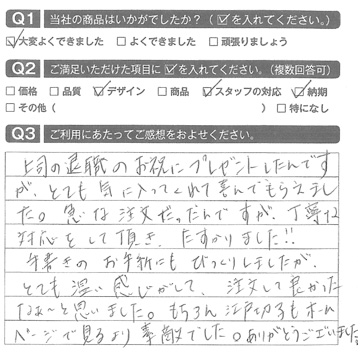 Q1 当社の商品はいかがでしたか？（☑を入れてください。）
☑大変よくできました □よくできました □頑張りましょう
Q2 ご満足いただけた項目に☑を入れてください。（複数回答可）
□価格 □品質 ☑デザイン □商品 ☑スタッフの対応 ☑納期
□その他（ ） □特になし
Q3 ご利用にあたってご感想をおよせください。
上司の退職のお祝にプレゼントしたんです
が、とても気に入ってくれて喜んでもらえまし
た。急な注文だったんですが、丁寧な
対応をして頂き、たすかりました!!
手書きのお手紙にもびっくりしましたが、
とても温い感じがして、注文して良かった
なぁ〜と思いました。もちろん江戸切子もホーム
ページで見るより素敵でした。ありがとうございました。